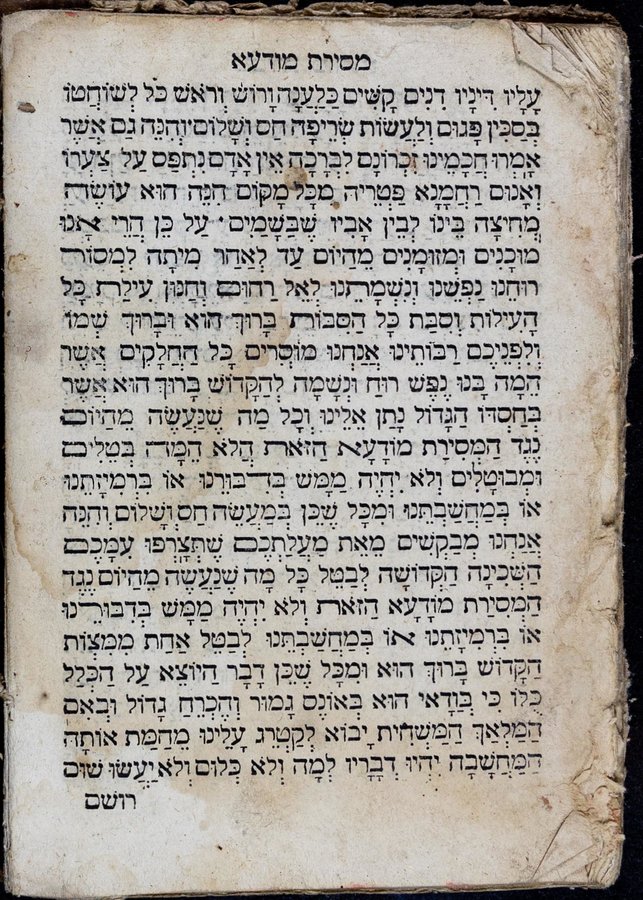 מסירת מודעא
עָלָיו דִּינָיו דִנִים קָשִׁים כַּלַּעֲנָה וָרוֹשׁ וְרֹאשׁ כֹּל לְשׁוֹחֲטוֹ
בְּסַכִּין פָּגוּם וְלַעֲשׂוֹת שְׂרֵיפָה חַס וְשָׁלוֹם וְהִנֵּה גַם אֲשֶׁר
אָמְרוּ חֲכָמֵינוּ זִכְרוֹנָם לִבְרָכָה אֵין אָדָם נִתְפַּס עַל צַעֲרוֹ
וְאָנוּם רַחֲמָנָא פַּטְרִיהּ מִכָּל מָקוֹם הִנֵּה הוּא עוֹשֶׂה
מְחִיצָה בֵּינוֹ לְבֵין אָבִיו שֶׁבַּשָּׁמַיִם ׃ עַל כֵּן הֲרֵי אָנוּ
מוּכָנִים וּמְזוּמָנִים מֵהַיוֹם עַד לְאַחַר מִיתָה לִמְסוֹר
רוּחֵנוּ נַפְשֵׁנוּ וְנִשְׁמָתֵנוּ לְאֵל רַחוּם וְחַנּוּן עִילַת כָּל
הָעִילּוֹת וְסִבַּת כָּל הַסִּבּוֹת בָּרוּךְ הוּא וּבָרוּךְ שְׁמוֹ
וְלִפְנֵיכֶם רַבּוֹתֵינוּ אֲנַחְנוּ מוֹסְרִים כָּל הַחֲלָקִים אֲשֶׁר
הֵמָּה בָּנוּ נֶפֶשׁ רוּחַ וּנְשָׁמָה לְהַקָּדוֹשׁ בָּרוּךְ הוּא אֲשֶׁר
בְּחַסְדּוֹ הַגָּדוֹל נָתַן אֵלֵינוּ וְכָל מַה שֶׁנַּעֲשֶׂה מֵהַיוֹם
נֶגֶד הַמְּסִירַת מוֹדָעָא הַזֹּאת הֲלֹא הֵמָּה בְּטֵלִים
וּמְבוּטָּלִים וְלֹא יִהְיֶה מַמָּשׁ בְּדִבּוּרֵנוּ אוֹ בִּרְמִיזָתֵנוּ
אוֹ בְּמַחֲשַׁבְתֵּנוּ וּמִכָּל שֶׁכֵּן בְּמַעֲשֶׂה חַס וְשָׁלוֹם וְהִנֵּה
אֲנַחְנוּ מְבַקְשִׁים מֵאֵת מַעֲלַתְכֶם שֶׁתְּצָרְפוּ עִמָּכֶם
הַשְּׁכִינָה הַקְּדוֹשָׁה לְבַטֵּל כָּל מַה שֶׁנַּעֲשֶׂה מֵהַיוֹם נֶגֶד
הַמְּסִירַת מוֹדָעָא הַזֹּאת וְלֹא יִהְיֶה מַמָּשׁ בְּדִיבּוּרֵינוּ
אוֹ בִּרְמִיזָתֵנוּ אוֹ בְּמַחֲשַׁבְתֵּנוּ לְבַטֵּל אַחַת מִמִּצְוֹת
הַקָּדוֹשׁ בָּרוּךְ הוּא וּמִכָּל שֶׁכֵּן דָּבָר הַיּוֹצֵא עַל הַכְּלָל
כֻּלּוֹ כִּי בְּוַדַאי הוּא בְּאוֹנֶס גָמוּר וְהֶכְרֵחַ גָּדוֹל וּבְאִם
הַמַּלְאָךְ הַמַּשְׁחִית יָבוֹא לְקַטְרֵג עָלֵינוּ מֵחֲמַת אוֹתָהּ
הַמַּחֲשָׁבָה יִהְיוּ דְבָרָיו לְמָה וְלֹא כְּלוּם וְלֹא יַעֲשׂוּ שׁוּם
רושם